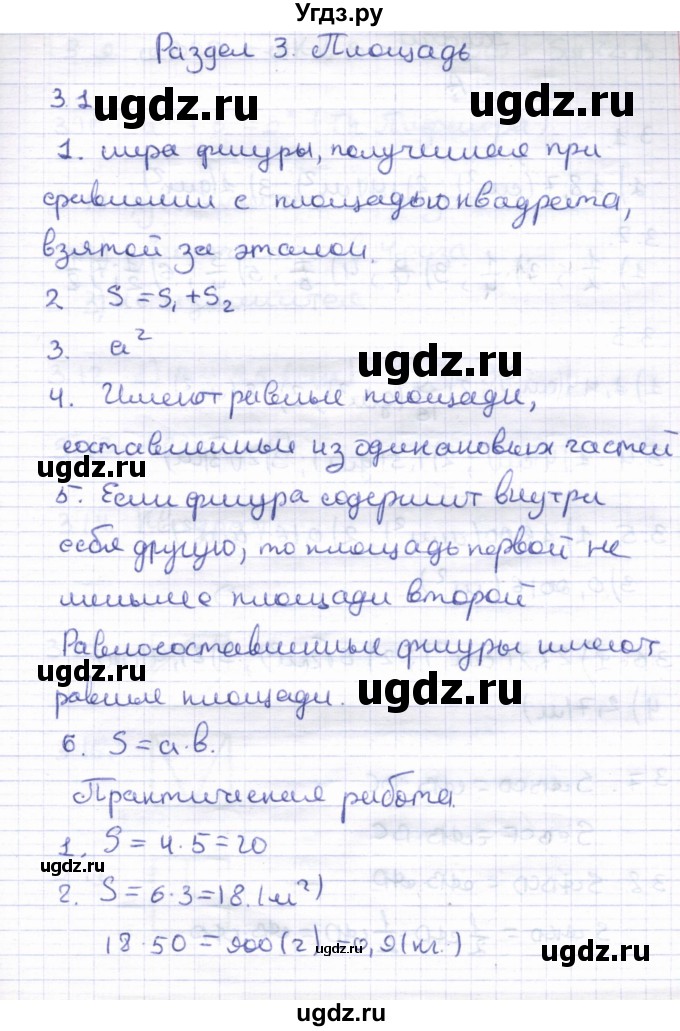 Угдз.ру
Раздел 3. Площадь
3.1
ugdz.ru ugdz.ru
1. мера фигуры, полученная при
сравнении с площадью квадрата,
взятой за эталон.
2 S = S₁ + S₂
3. a²
ugdz.ru
4. Имеют равные площади,
составленные из одинаковых частей
ugdz.ru
5. Если фигура содержит внутри
себя другую, то площадь первой не
меньше площади второй
Равносоставленные фигуры имеют
ugdz.ru ugdz.ru
равные площади.
6. S = a·b.
Практическая работа.
1. S = 4·5 = 20
ugdz.ru
2. S = 6·3 = 18 (м²)
18·50 = 900 (г) = 0,9 (кг.)
ugdz.ru ugdz.ru
ugdz.ru